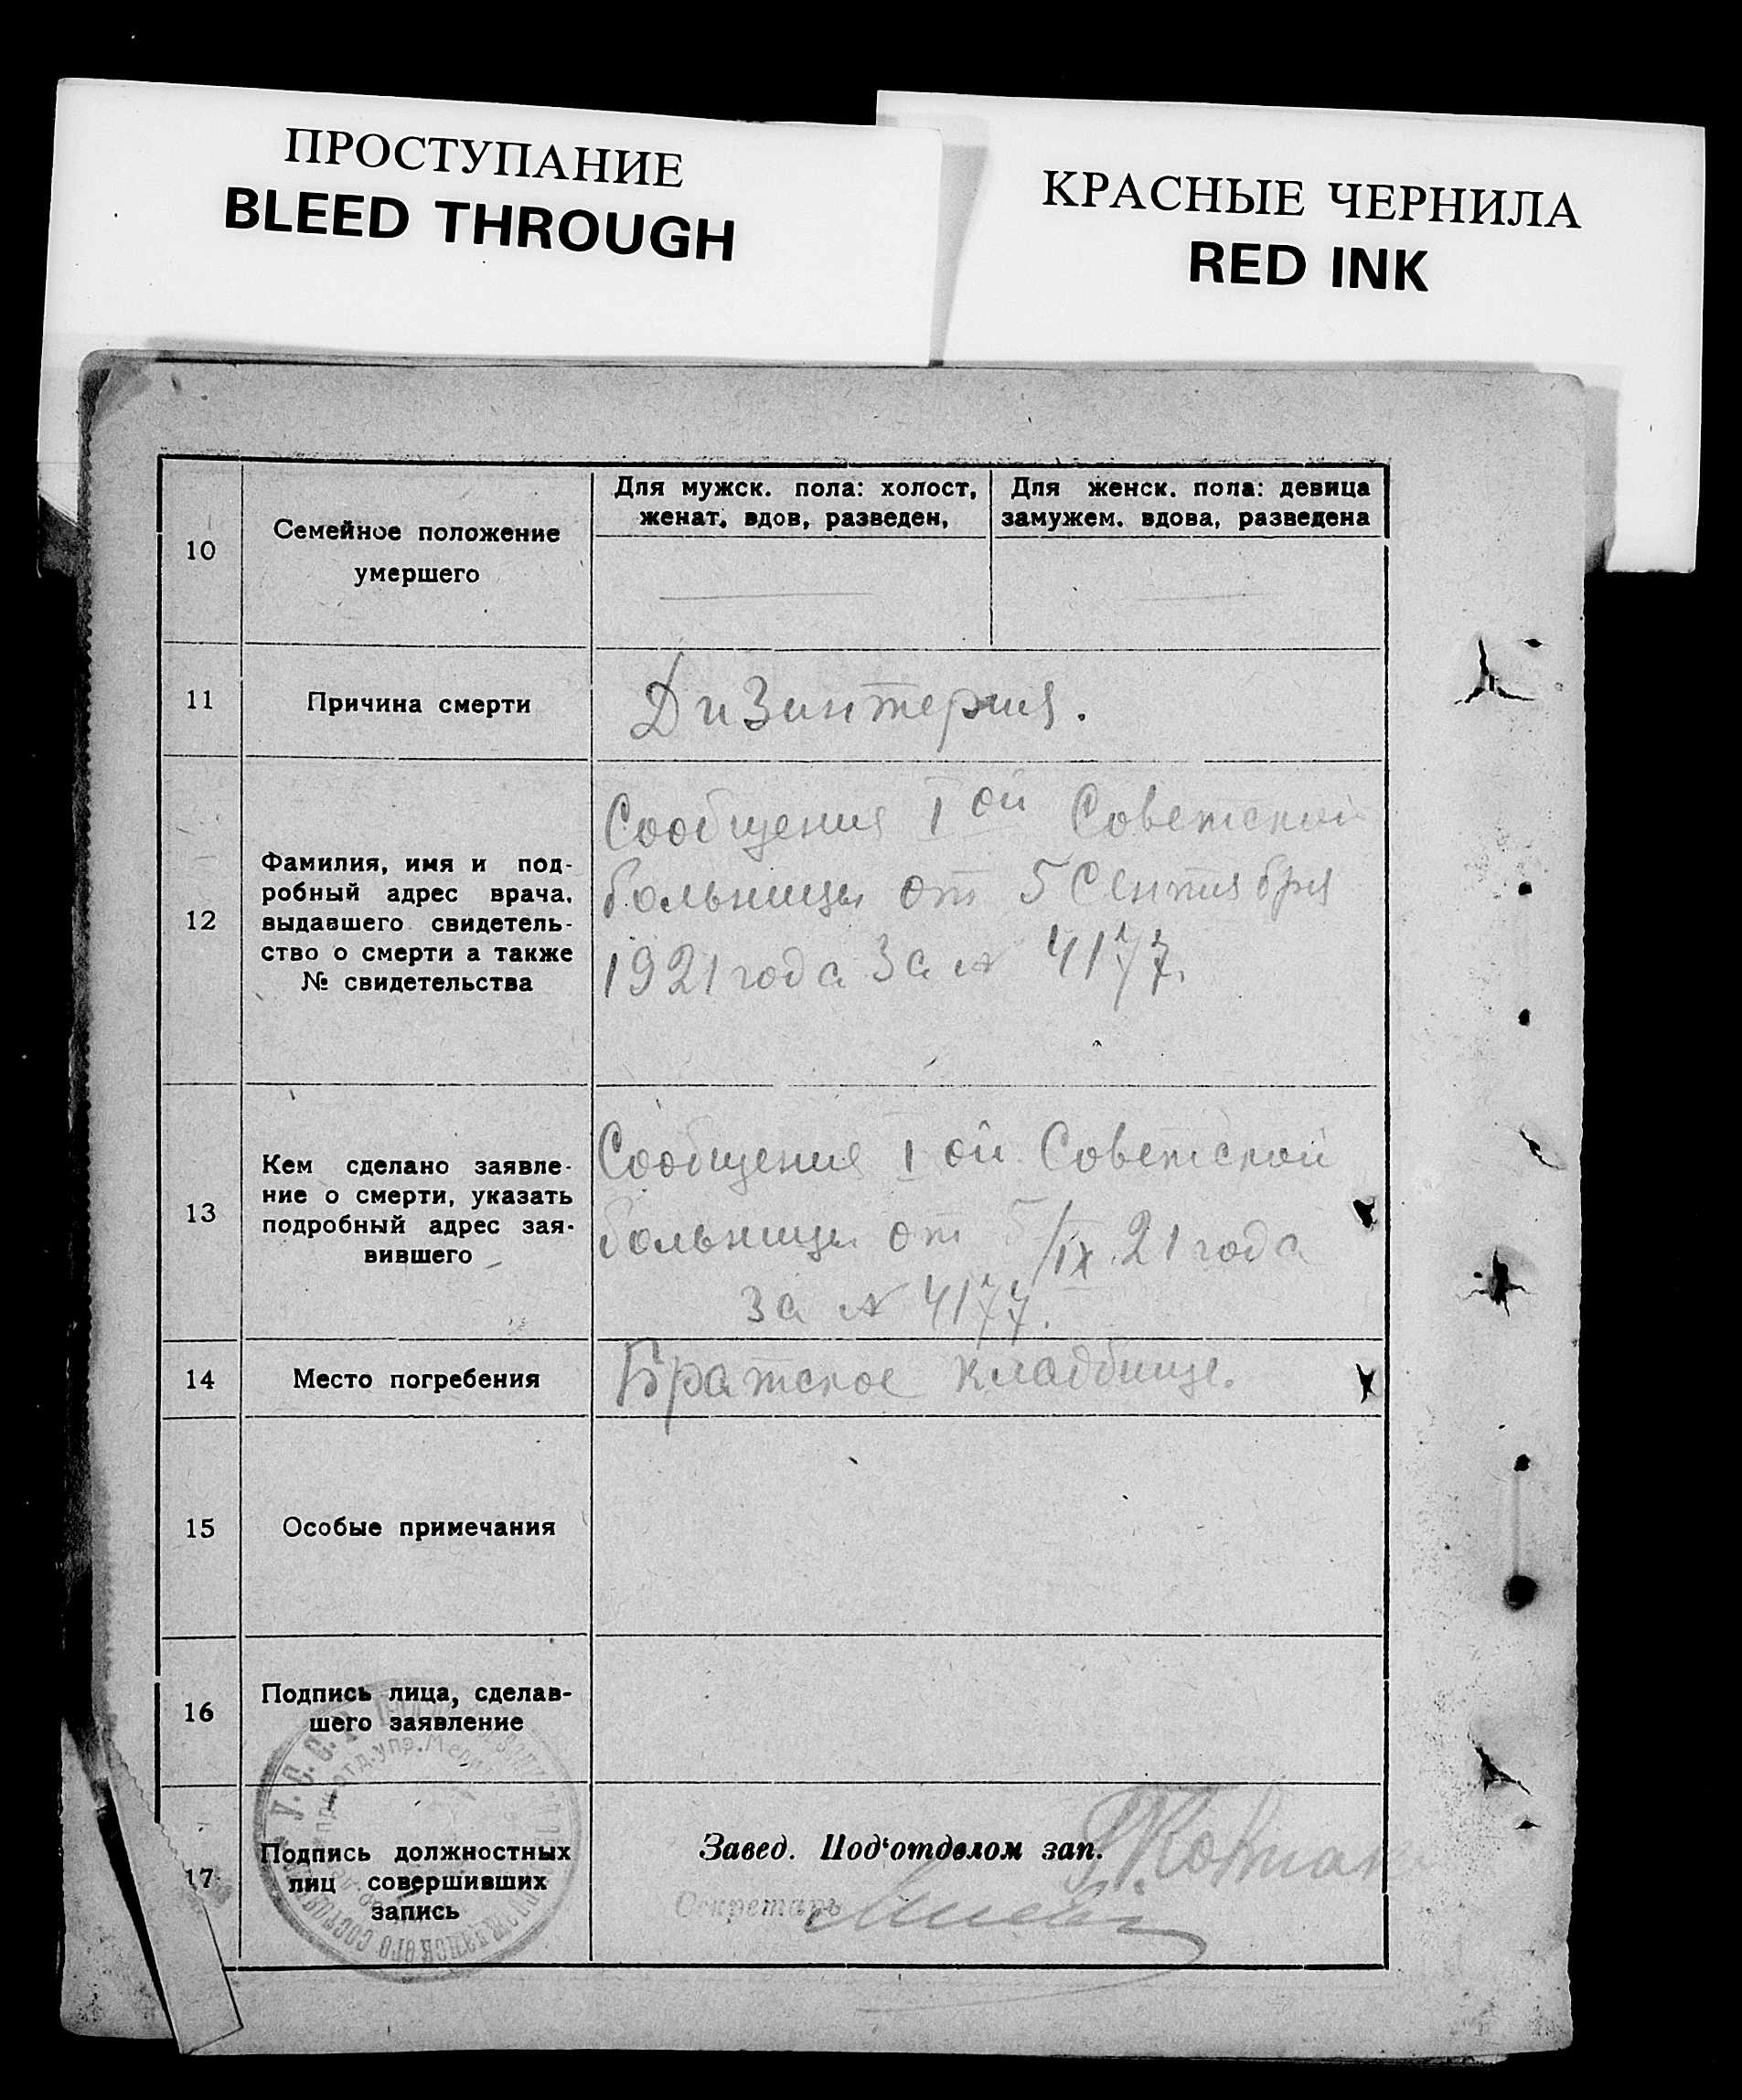 ПРОСТУПАНИЕ
BLEED THROUGH
КРАСНЫЕ ЧЕРНИЛА
RED INK
10
Семейное положение
умершего
Для мужск. пола: холост,
женат, вдов, разведен,
Для женск. пола: девица
замужем. вдова, разведена
11
Причина смерти
Дизинтерия.
12
Фамилия, имя и под-
робный адрес врача,
выдавшего свидетель-
ство о смерти а также
№ свидетельства
Сообщения I ой Советской
больницы от 5 Сентября
1921 года за № 4177.
13
Кем сделано заявле-
ние о смерти, указать
подробный адрес зая-
вившего
Сообщения I ой Советской
больницы от 5/IX 21 года
за № 4177.
14
Место погребения
Братское кладбище.
15
Особые примечания
16
Подпись лица, сделав-
шего заявление
17
Подпись должностных
лиц совершивших
запись
Завед. Под'отделом зап.
Секретарь
У. С. С. Р.
при отд. упр.